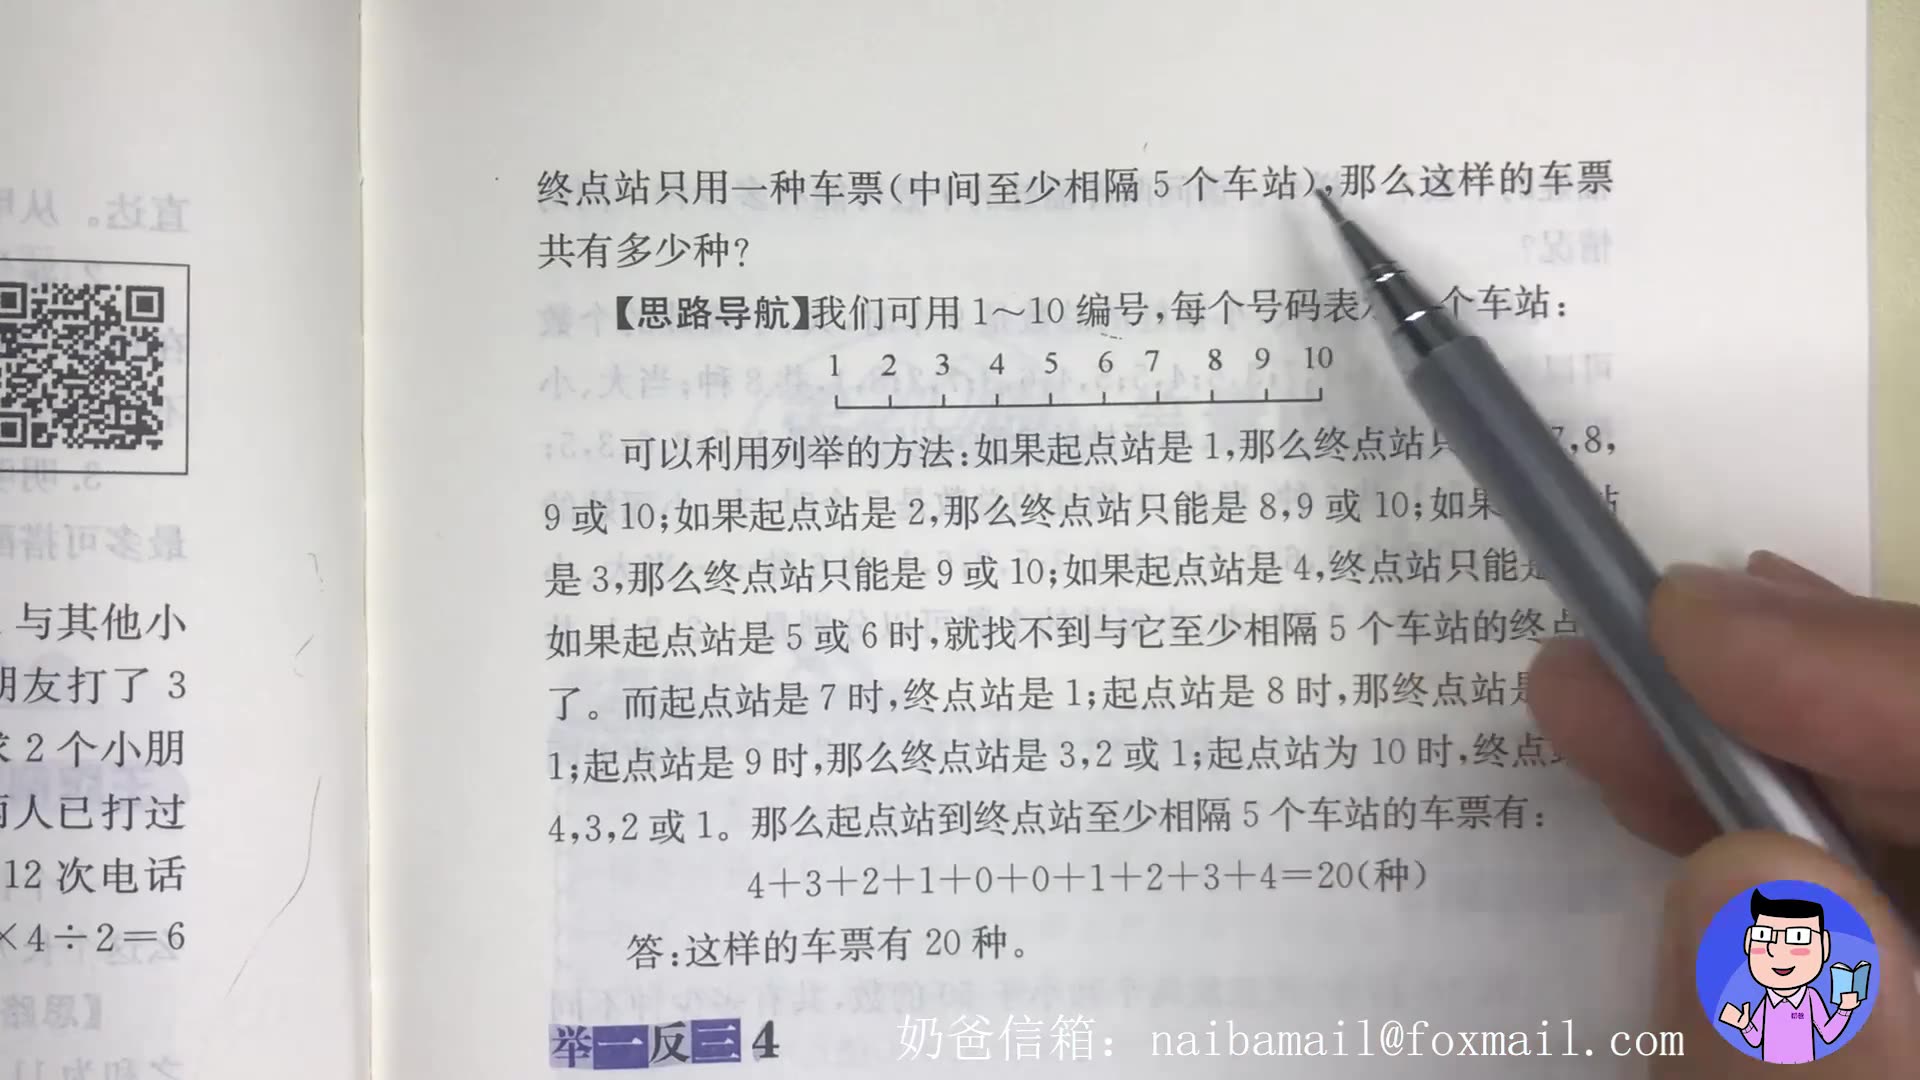 终点站只用一种车票(中间至少相隔5个车站),那么这样的车票
共有多少种?
【思路导航】我们可用1～10编号,每个号码表 个车站:
1 2 3 4 5 6 7 8 9 10
可以利用列举的方法:如果起点站是1,那么终点站 7,8,
9或10;如果起点站是2,那么终点站只能是8,9或10;如果
是3,那么终点站只能是9或10;如果起点站是4,终点站只能
如果起点站是5或6时,就找不到与它至少相隔5个车站的终点
了。而起点站是7时,终点站是1;起点站是8时,那终点站
1;起点站是9时,那么终点站是3,2或1;起点站为10时,终点
4,3,2或1。那么起点站到终点站至少相隔5个车站的车票有:
4+3+2+1+0+0+1+2+3+4=20(种)
答:这样的车票有20种。
举一反三4
与其他小
朋友打了3
2个小朋
两人已打过
12次电话
×4÷2=6
奶爸信箱: naibamail@foxmail.com